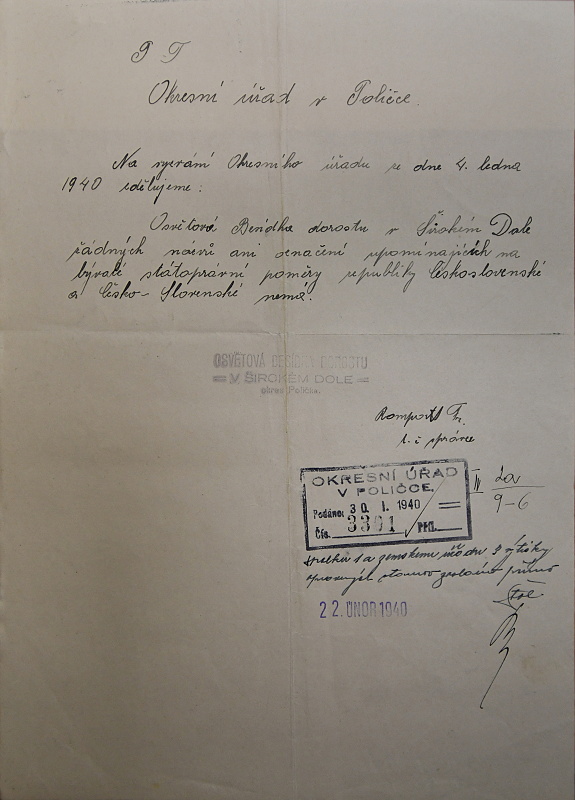 P T
Okresní úřad v Poličce.
Na vyzvání Okresního úřadu ze dne 4. ledna
1940 sdělujeme:
Osvětová Besídka dorostu v Širokém Dole
řádných názvů ani označení upomínajících na
bývalé státoprávní poměry republiky Československé
a Česko-Slovenské nemá.
OSVĚTOVÁ BESÍDKA DOROSTU
V ŠIROKÉM DOLE
okres Polička.
Romportl Fr.
t. č správce
OKRESNÍ ÚŘAD
V POLIČCE,
Podáno: 30. I. 1940
Čís. 3391 Příl.
II 2a
9-6
22. ÚNOR 1940